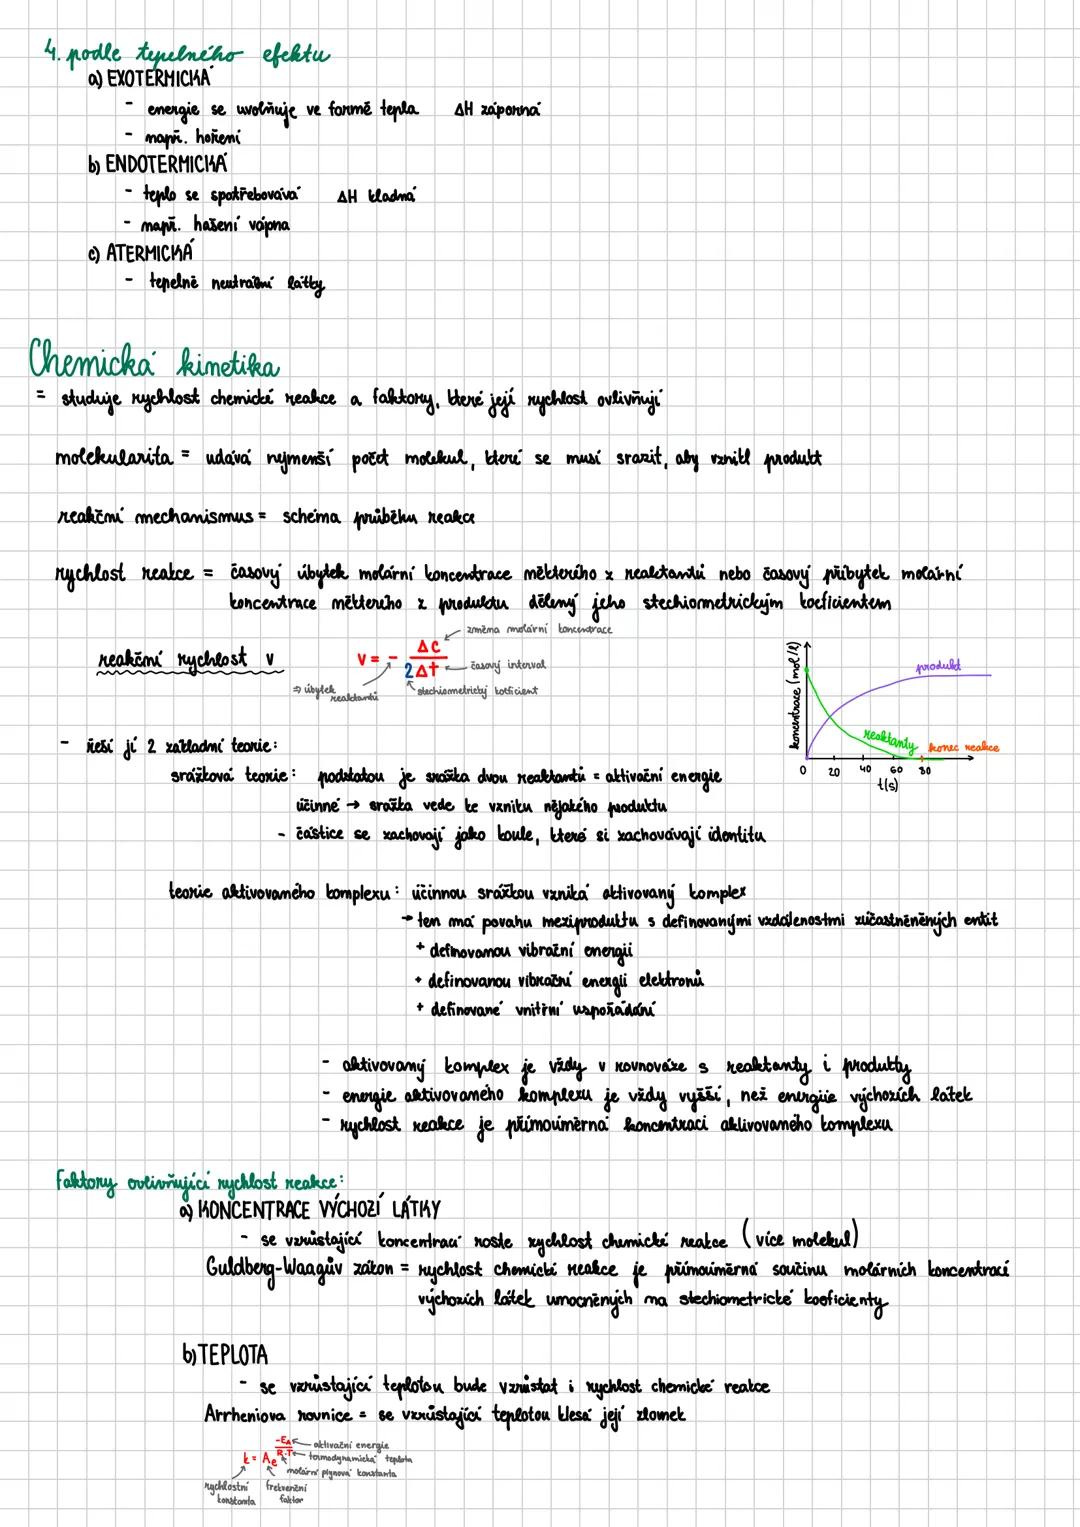 4. podle tepelného efektu
a) EXOTERMICKÁ
- energie se uvolňuje ve formě tepla ΔH záporná
- např. hoření
b) ENDOTERMICKÁ
- teplo se spotřebovává ΔH kladná
- např. hašení vápna
c) ATERMICKÁ
- tepelně neutrální látky
Chemická kinetika
= studuje rychlost chemické reakce a faktory, které její rychlost ovlivňují
molekularita = udává nejmenší počet molekul, které se musí srazit, aby vznikl produkt
reakční mechanismus = schéma průběhu reakce
rychlost reakce = časový úbytek molární koncentrace některého z reaktantů nebo časový přibytek molární
koncentrace některého z produktu dělený jeho stechiometrickým koeficientem
reakční rychlost v
v = - Δc / 2Δt
změna molární koncentrace
časový interval
stechiometrický koeficient
⇒ úbytek reaktantů
koncentrace (mol/l)
produkt
reaktanty
konec reakce
0 20 40 60 80
t(s)
- řeší jí 2 základní teorie:
srážková teorie: podstatou je srážka dvou reaktantů = aktivační energie
účinné → srážka vede ke vzniku nějakého produktu
- částice se zachovají jako koule, které si zachovávají identitu
teorie aktivovaného komplexu: účinnou srážkou vzniká aktivovaný komplex
→ ten má povahu meziproduktu s definovanými vzdálenostmi zúčastněněných entit
+ definovanou vibrační energii
+ definovanou vibrační energii elektronů
+ definované vnitřní uspořádání
- aktivovaný komplex je vždy v rovnováze s reaktanty i produkty
- energie aktivovaného komplexu je vždy vyšší, než energiie výchozích látek
- rychlost reakce je přímoúměrná koncentraci aktivovaného komplexu
Faktory ovlivňující rychlost reakce:
a) KONCENTRACE VÝCHOZÍ LÁTKY
- se vzrůstající koncentrací roste rychlost chemické reakce (více molekul)
Guldberg-Waagův zákon = rychlost chemické reakce je přímoúměrná součinu molárních koncentrací
výchozích látek umocněných na stechiometrické koeficienty
b) TEPLOTA
- se vzrůstající teplotou bude vzrůstat i rychlost chemické reakce
Arrheniova rovnice = se vzrůstající teplotou klesá její zlomek
k = Ae -EA / R·T
aktivační energie
termodynamická teplota
molární plynová konstanta
rychlostní konstanta
frekvenční faktor